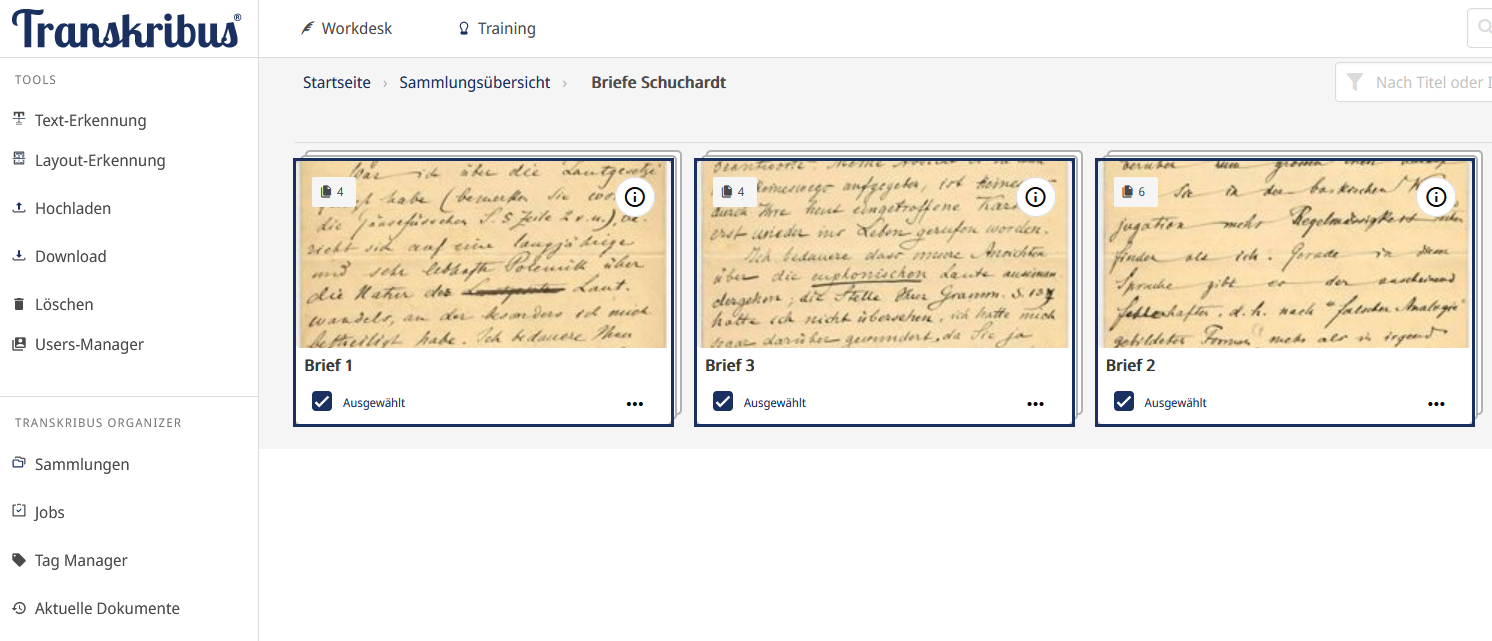 Transkribus®
Workdesk
Training
TOOLS
Text-Erkennung
Layout-Erkennung
Hochladen
Download
Löschen
Users-Manager
TRANSKRIBUS ORGANIZER
Sammlungen
Jobs
Tag Manager
Aktuelle Dokumente
Startseite › Sammlungsübersicht › Briefe Schuchardt
Nach Titel oder I
4
War ich über die Lautgesetze
habe (bemerken Sie
die Gänsefüsschen S. 5 Zeile 2 v. u.), be-
zieht sich auf eine langjährige
und sehr lebhafte Polemik über
die Natur des Laut-
wandels, an der besonders ich mich
betheiligt habe. Ich bedauere Ihnen
Brief 1
Ausgewählt
4
beantworte. Meine
keineswegs aufgegeben, ist
durch Ihre heut eingetroffene
erst wieder ins Leben gerufen worden.
Ich bedauere dass unsere Ansichten
über die euphonischen Laute auseinan-
dergehen; die Stelle Ihrer Gramm. S. 137
hatte ich nicht übersehen, ich hatte mich
sogar darüber gewundert, da Sie ja
Brief 3
Ausgewählt
6
darüber zum grossen
Sie in der baskischen
jugation mehr Regelmässigkeit
finden als ich. Gerade in dem
Sprache gibt es der anscheinend
fehlerhaften, d. h. nach "falscher Analogie"
gebildeten Formen mehr als in irgend
Brief 2
Ausgewählt